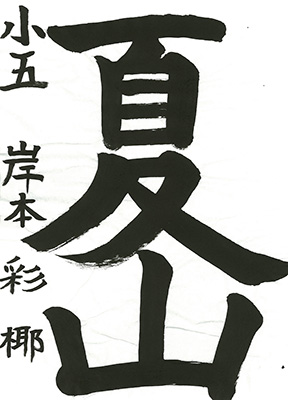 夏山
小五 岸本彩椰